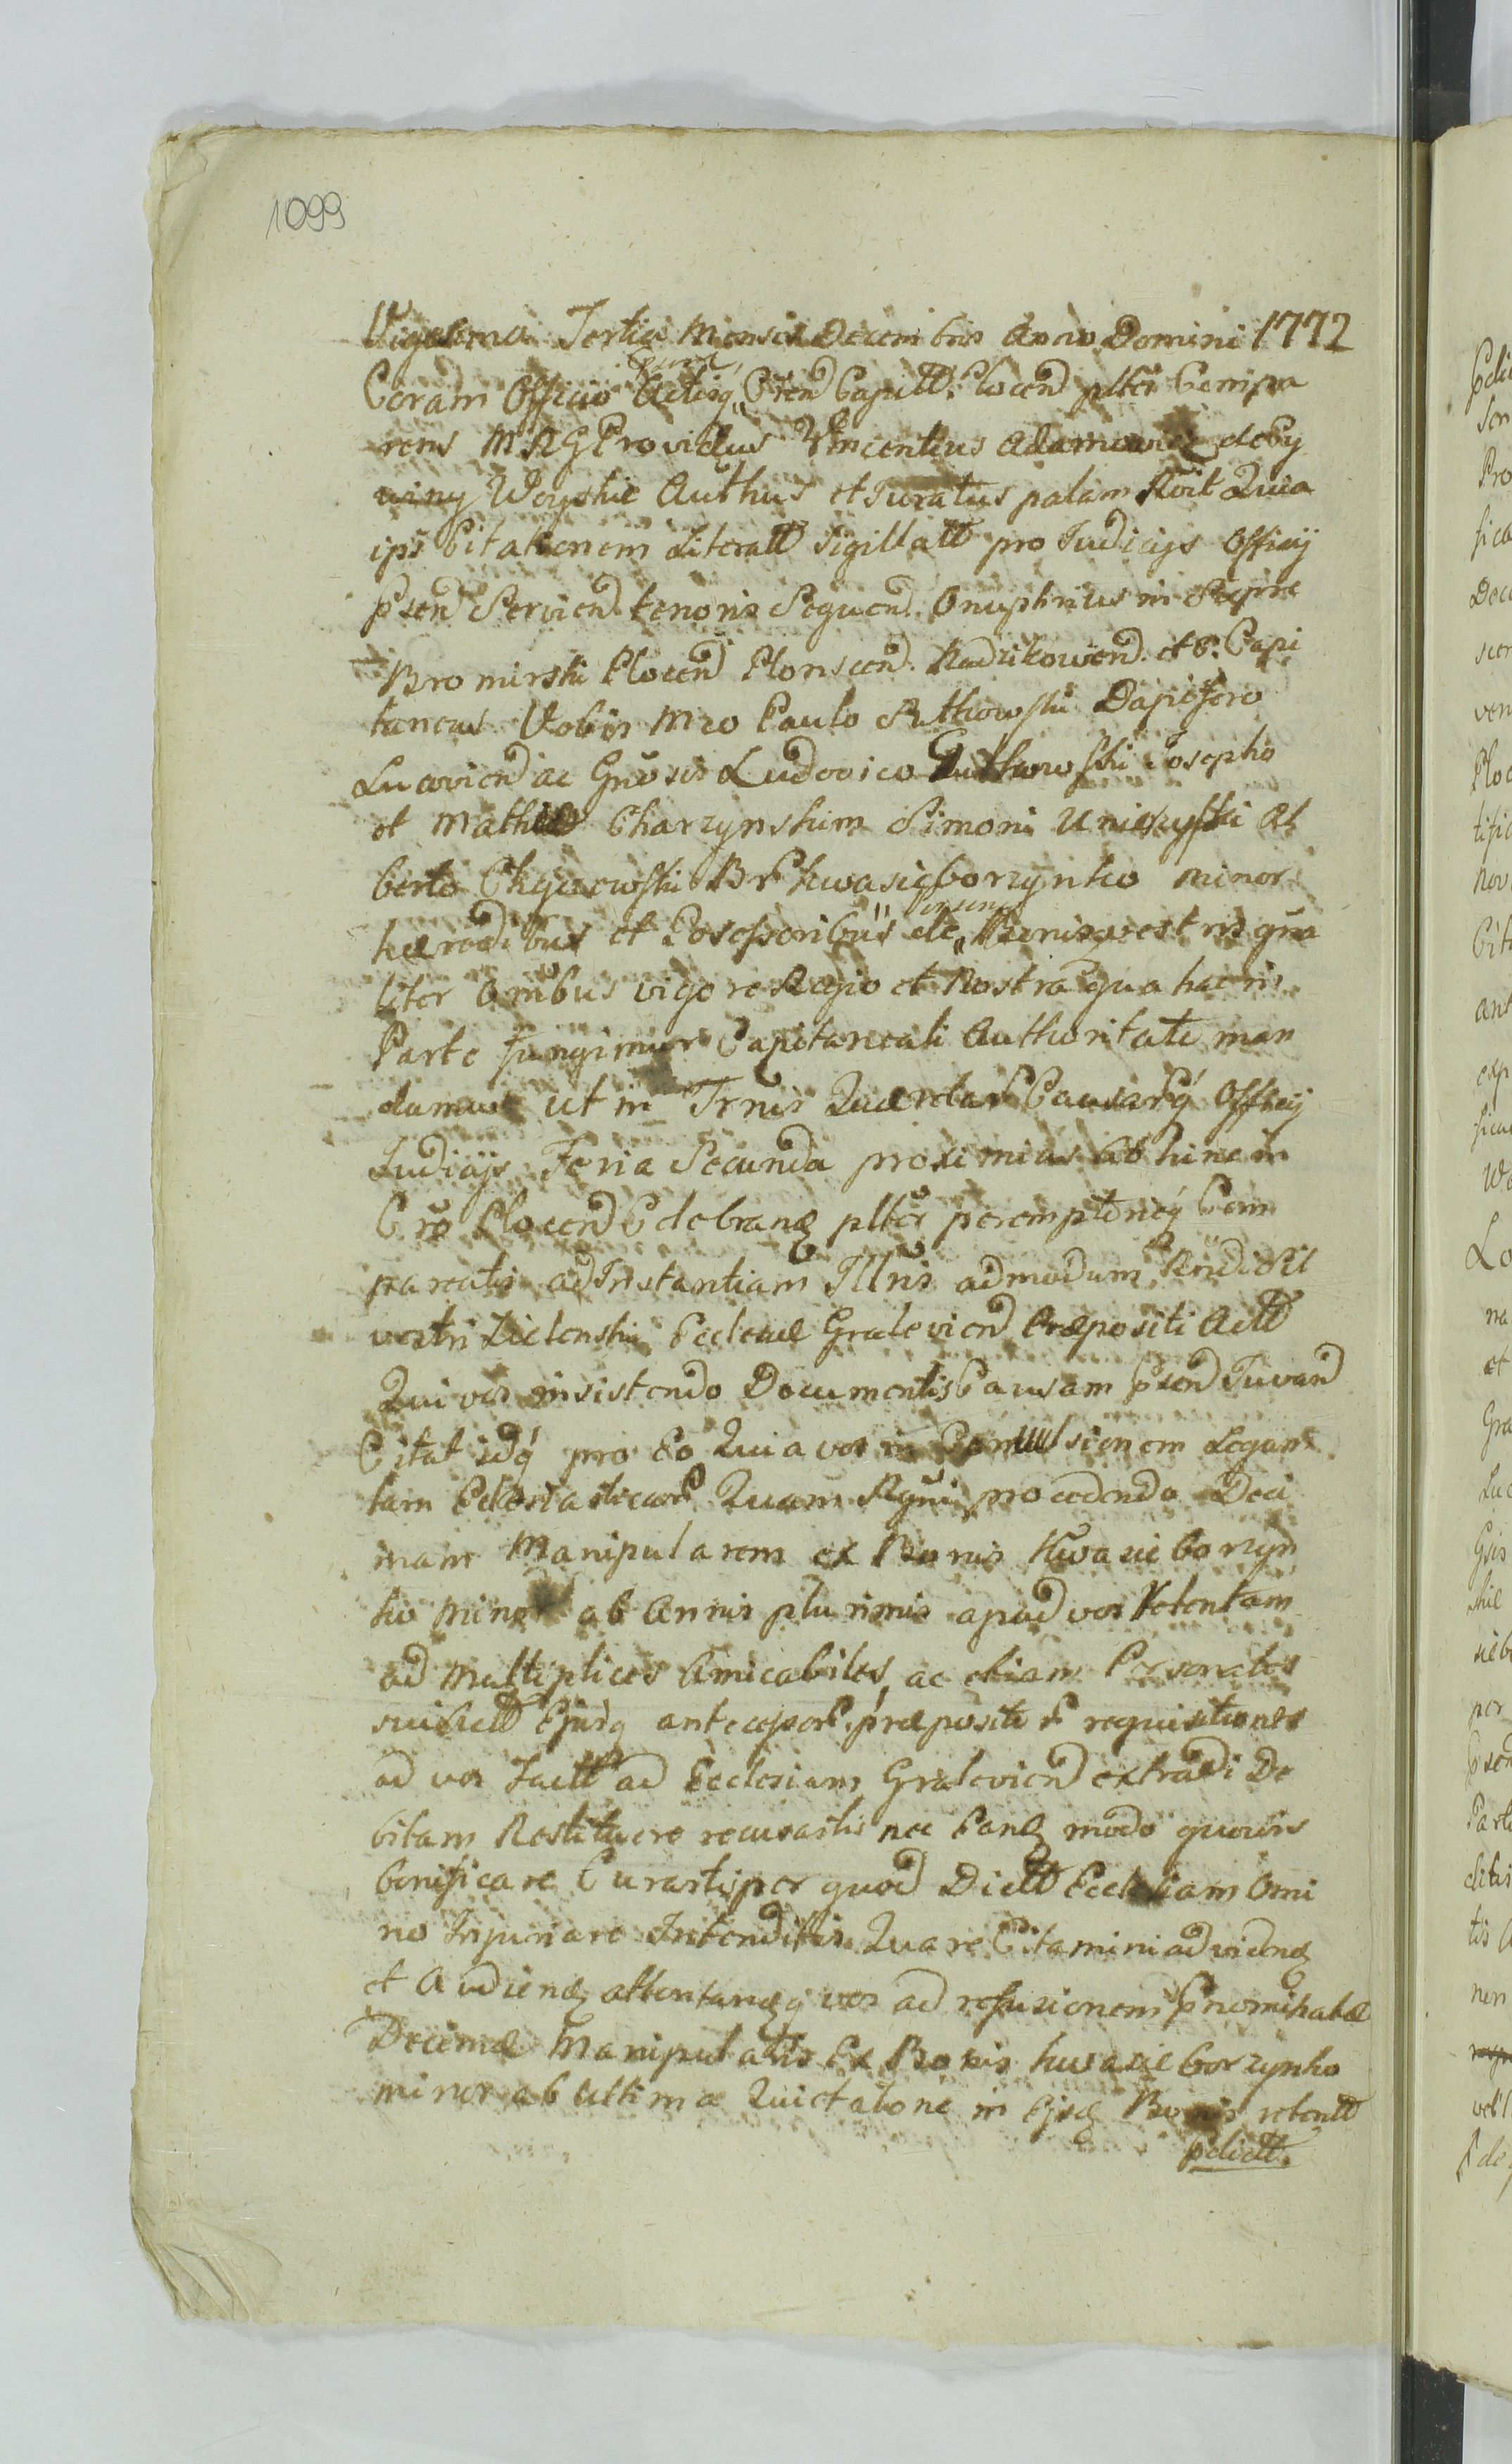 1099
Vigesima Tertia Mensis Decembris Anno Domini 1772
Coram Officio Actisq Pren Capitt. Plocen plter Compa
rens MRG Providus Vincentius Adamowicz de By
winy Woyskie Authus et Juratus palam Rcit Quia
ips Citationem Literatt Sigillatt pro Judicijs Officij
psen Servien tenoris Sequen. Onuphrius in Siepie
Bromirski Plocen Plonscen. Radzikowien. et c. Capi
taneus Vobis Mco Paulo Rutkowski Dapifero
Lucovien ac Gnosis Ludovico Rutkowski Josepho
et Mathiæ Charzynskim Simoni Unieyski Al
berto Chyczewski BrP Kwasieborzynko minor
hæredibus et Possessoribus de Personis Bonisq vestris gña
liter Omibus vigore Regio et Nostra qua hac in
Parte fungimur Capitaneali Authoritate man
damus ut in Trnis Querelar Causarq Officij
Judicijs Feria Secunda proximius ab hinc in
Cro Plocen Celebran plter peremptorieq Com
pareatis ad Instantiam Illris admodum Rndi Sil
vestri Zielenski Ecclesiæ Gralevien Præpositi Actt
Qui vos insistendo Documentis Causam psen Juvan
Citat idq pro Eo Quia vos in Convulsionem Legum
tam Eclesiasticar Quam Regni procedendo Deci
mam Manipularem ex Bonis Kwasieborzyn
ko minor ab Annis plurimis apud vos Retentam
ad Multiplices Amicabiles, ac etiam Personales
sui Actt Ejusq antecessor. præpositi P requisitiones
ad vos Factt ad Ecclesiam Gralevien extradi De
bitam Restituere recusastis nec Eand modo quovis
bonificare Curastis per quod Dictt Ecclesiam Omi
no Injuriare Intenditis Quare Citamini ad viden
et Audien attentandq vos ad refusionem Pnominatæ
Decimæ Manipularis Ex Bonis Kwasieborzynko
minor ab Ultima Quietatione in Ejsd Bonis retentt
pdictt.